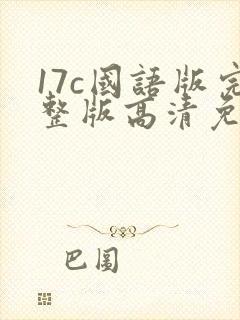 17c國語版完
整版高清免
巴圖